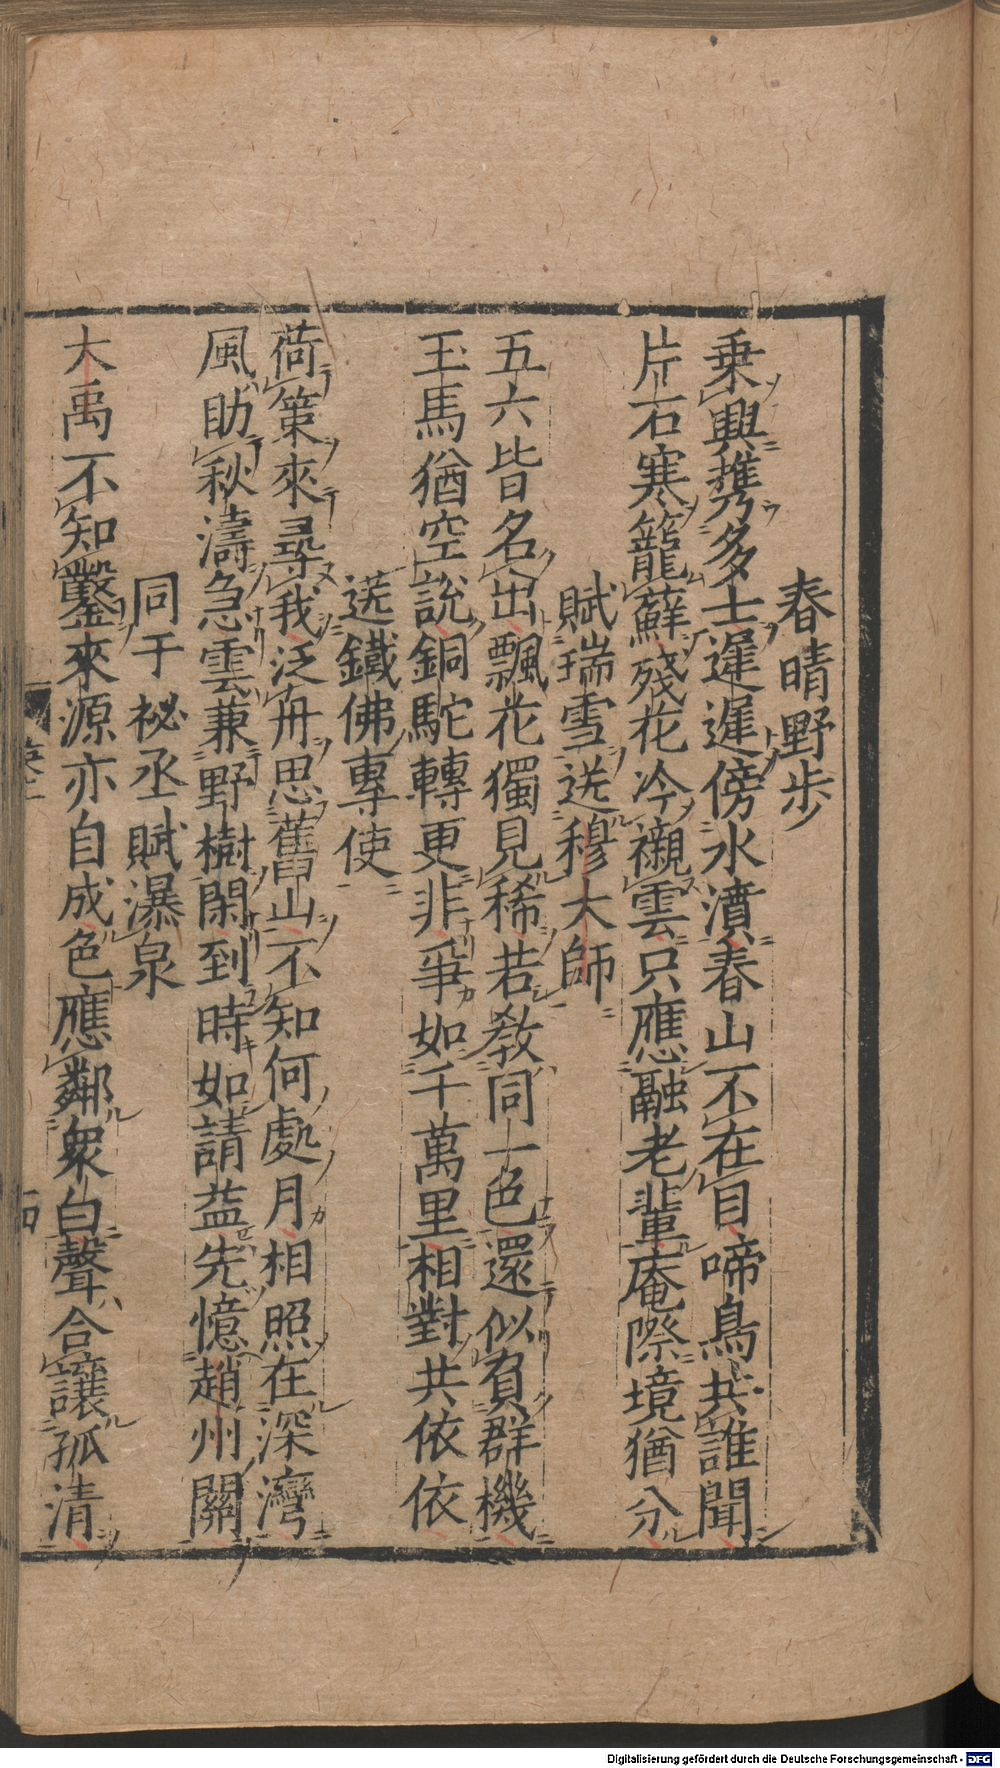 春晴野步
乗興携多士遲遲傍水濆春山不在目啼鳥共誰聞
片石寒籠蘚殘花冷襯雲只應融老輩庵際境猶分
賦瑞雪送穆大師
五六皆名出飄花獨見稀若教同一色還似負群機
玉馬猶空說銅駝轉更非爭如千萬里相對共依依
送鐵佛專使
荷策來尋我泛舟思舊山不知何處月相照在深灣
風助秋濤急雲兼野樹閑到時如請益先憶趙州關
同于祕丞賦瀑泉
大禹不知鑿來源亦自成色應鄰衆白聲合讓孤清
Digitalisierung gefördert durch die Deutsche Forschungsgemeinschaft - DFG